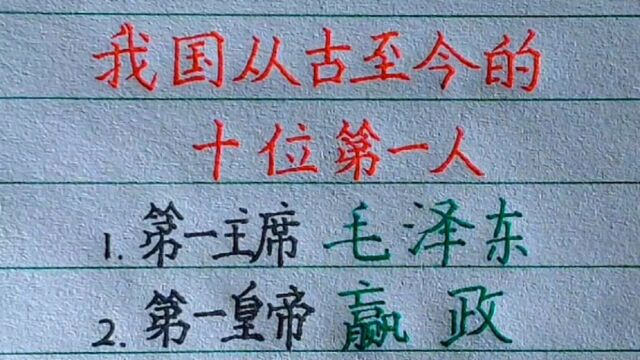 我国从古至今的
十位第一人
1. 第一主席 毛泽东
2. 第一皇帝 赢政